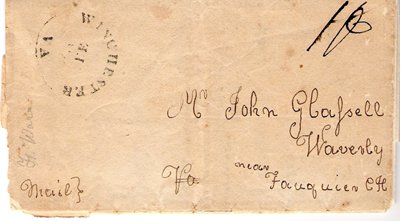 WINCHESTER VA
FE
10
Mr John Glassell
Waverly
near
Va Fauquier CH
Mail}